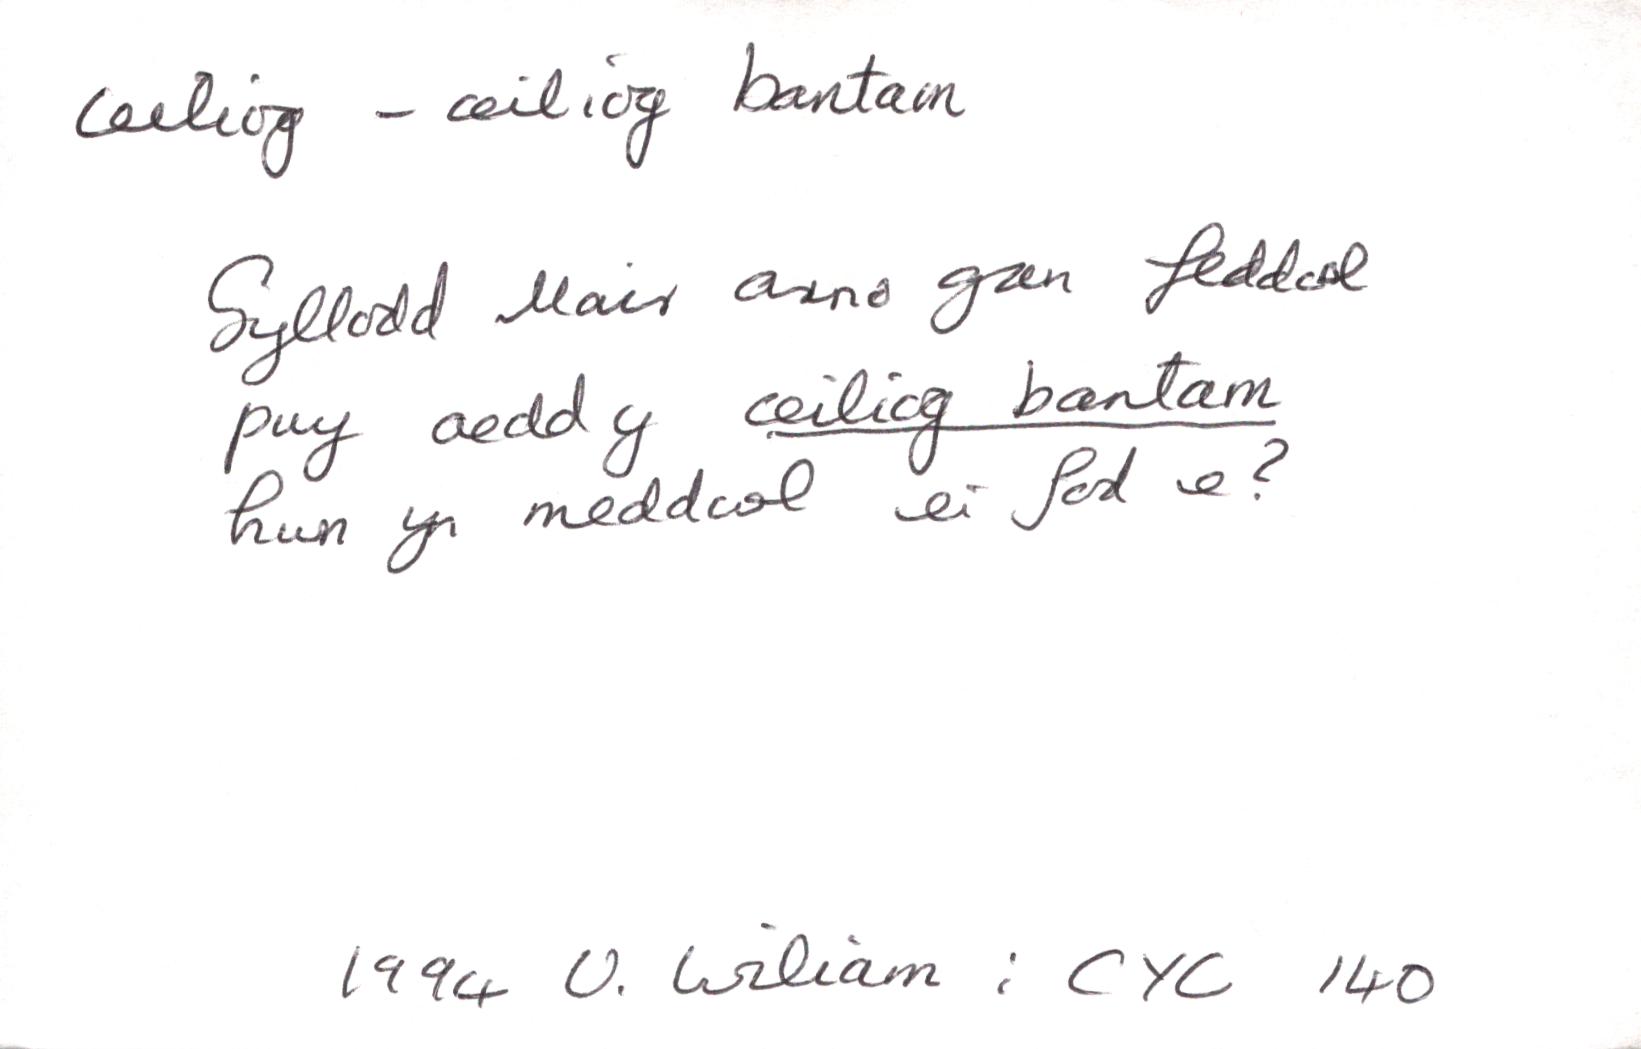 ceiliog - ceiliog bantam
Syllodd Mair arno gan feddwl
pwy oedd y ceiliog bantam
hun yn meddwl ei fod e?
1994 U. Wiliam : CYC 140